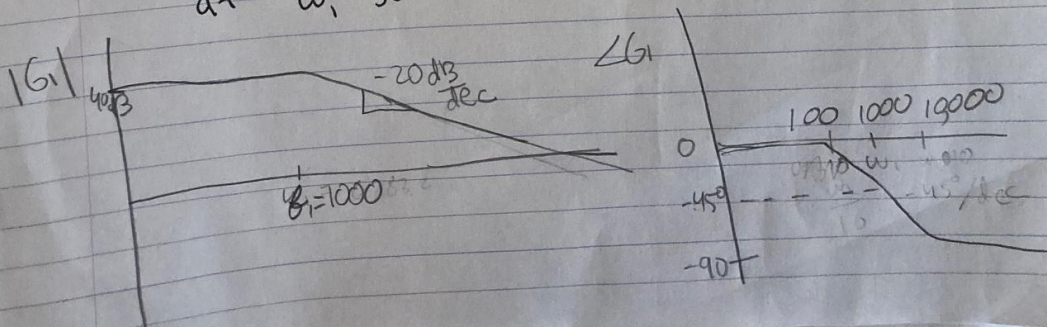 |G₁|
40dB
-20dB/dec
ω₁=1000
∠G₁
100 1000 10000
0
ω₁
-45°
-45°/dec
10
-90